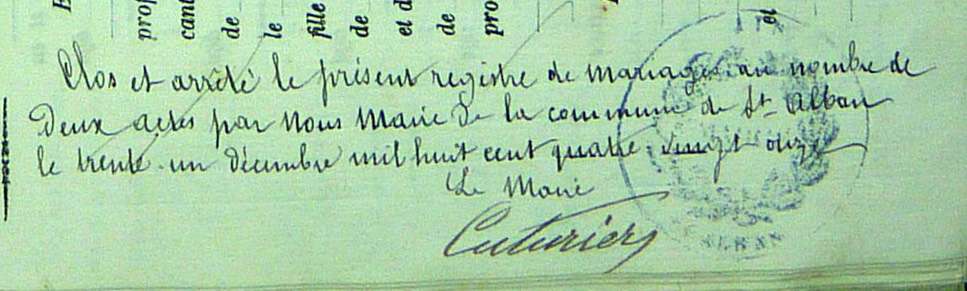 prop
cant
de
le
fille
de
et d
de
pro
et
Clos et arrêté le présent registre de mariages au nombre de
Deux actes par Nous Maire de la commune de St Alban
le trente-un décembre mil huit cent quatre-vingt onze
Le Maire
Cuturier
ALBAN